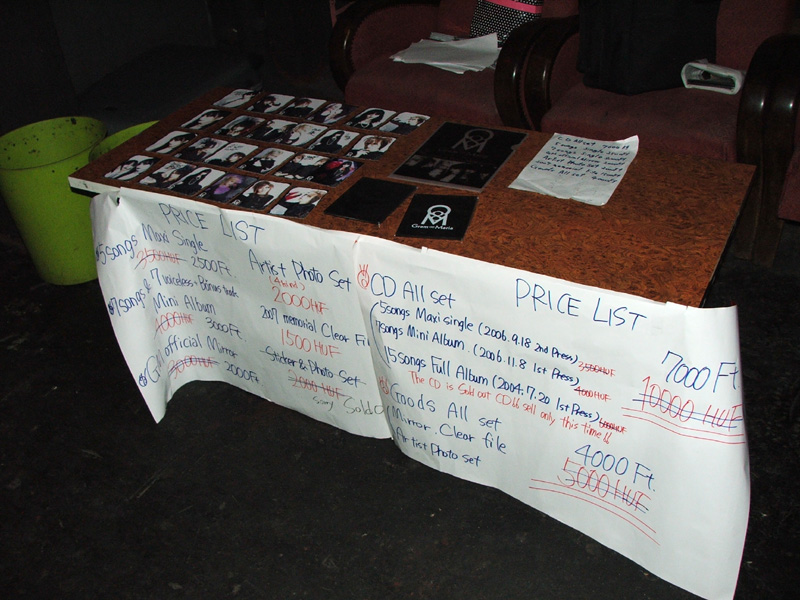 PRICE LIST
5songs Maxi Single
3500HUF 2500Ft.
7songs & 7 voiceless + Bonus track
Mini Album
4000HUF 3000Ft.
official Mirror
3000HUF 2000Ft
Artist Photo Set
2000HUF
2007 memorial Clear Fi
1500HUF
Sticker & Photo Set
2000HUF
sorry Sold O
CD All set
PRICE LIST
5songs Maxi single (2006.9.18 2nd Press) 3500HUF
7songs Mini Album (2006.11.8 1st Press) 4000HUF
15songs Full Album (2004.7.20 1st Press)
The CD is Sold out CD we sell only this time!!
7000Ft
10000HUF
Goods All set
Mirror. Clear file
Artist Photo set
4000Ft.
5000HUF